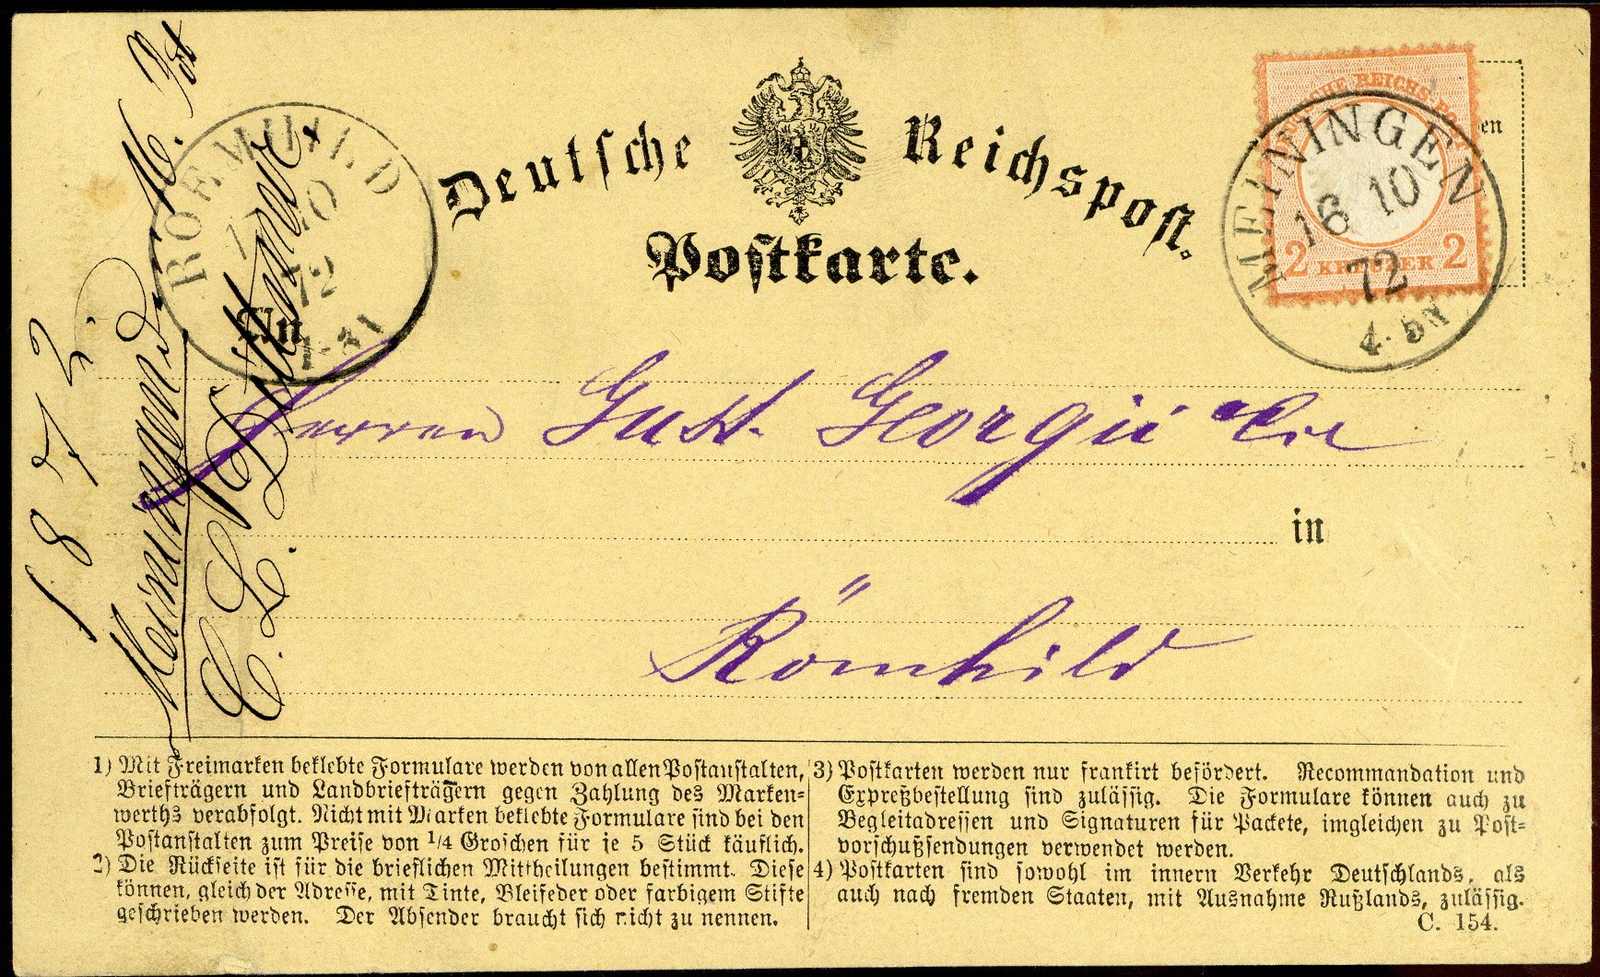 Deutsche Reichspost.
Postkarte.
DEUTSCHE REICHS-POST
2 KREUZER 2
MEININGEN
16 10
72
4-5N
ROEMHILD
10
72
An
Herren Gust. Georgii & Cie
in
Römhild
1872.
Meiningen d. 16. Oct
C. L. Dittmar
1) Mit Freimarken beklebte Formulare werden von allen Postanstalten,
Briefträgern und Landbriefträgern gegen Zahlung des Marken-
werths verabfolgt. Nicht mit Marken beklebte Formulare sind bei den
Postanstalten zum Preise von 1/4 Groschen für je 5 Stück käuflich.
2) Die Rückseite ist für die brieflichen Mittheilungen bestimmt. Diese
können, gleich der Adresse, mit Tinte, Bleifeder oder farbigem Stifte
geschrieben werden. Der Absender braucht sich nicht zu nennen.
3) Postkarten werden nur frankirt befördert. Recommandation und
Expreßbestellung sind zulässig. Die Formulare können auch zu
Begleitadressen und Signaturen für Packete, imgleichen zu Post-
vorschußsendungen verwendet werden.
4) Postkarten sind sowohl im innern Verkehr Deutschlands, als
auch nach fremden Staaten, mit Ausnahme Rußlands, zulässig.
C. 154.